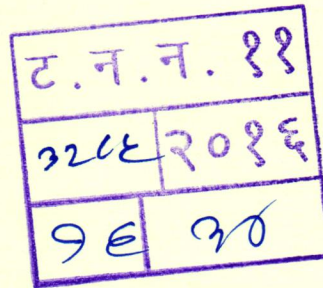 ट.न.न. ११
३२८६ २०१६
१६ ३४